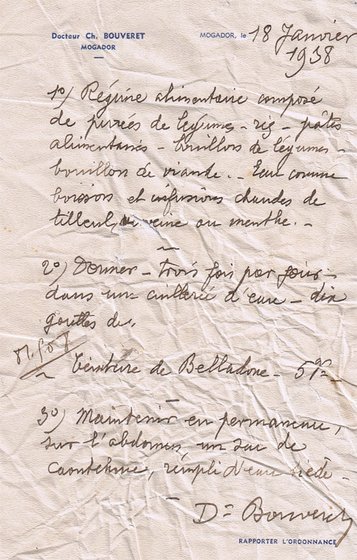 Docteur Ch. BOUVERET
MOGADOR
MOGADOR, le 18 Janvier
1938
1º) Régime alimentaire composé
de purées de légumes - riz - pâtes
alimentaires - bouillons de légumes -
bouillon de viande .. Eau comme
boisson et infusions chaudes de
tilleul, verveine ou menthe. -
2º) Donner - trois fois par jour -
dans un cuillerée d'eau - dix
gouttes de.
Teinture de Belladone - 5gr
3º) Maintenir en permanence,
sur l'abdomen un sac de
caoutchouc, rempli d'eau tiède -
Dr Bouveret
RAPPORTER L'ORDONNANCE